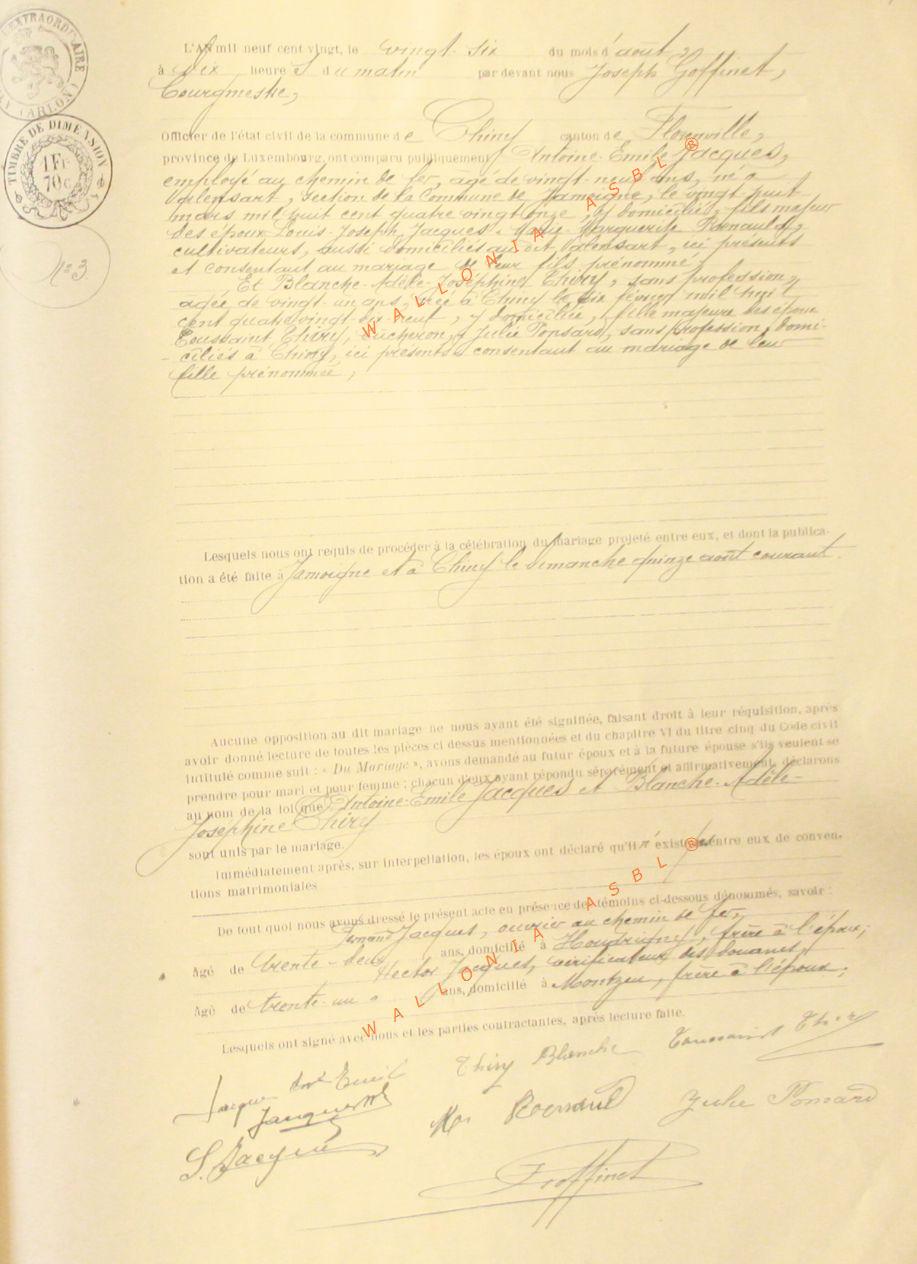 EXTRAORDINAIRE
(ARLON)
TIMBRE DE DIMENSION
1 Fr.
70 c.
N° 3
L'AN mil neuf cent vingt, le vingt-six du mois d'août,
à dix heures du matin par devant nous Joseph Goffinet,
Bourgmestre,
Officier de l'état civil de la commune de Chiny canton de Florenville,
province de Luxembourg, ont comparu publiquement, Antoine-Emile Jacques,
employé au chemin de fer, agé de vingt-neuf ans, né à
Valensart, section de la Commune de Jamoigne, le vingt huit
mars mil huit cent quatre vingt onze, y domicilié, fils majeur
des époux Louis-Joseph Jacques & Marie-Marguerite
cultivateurs, aussi domiciliés au dit Valensart, ici présents
et consentant au mariage de leur fils prénommé,
Et Blanche-Adèle-Joséphine Thiry, sans profession,
agée de vingt-un ans, née à Chiny le six février mil huit
cent quatre vingt dix neuf, y domiciliée, fille majeure des époux
Toussaint Thiry, bûcheron, & Julie Ponsard, sans profession, domi-
-ciliés à Chiny, ici présents & consentant au mariage de leur
fille prénommée,
Lesquels nous ont requis de procéder à la célébration du mariage projeté entre eux, et dont la publica-
tion a été faite à Jamoigne et à Chiny le dimanche quinze août courant.
Aucune opposition au dit mariage ne nous ayant été signifiée, faisant droit à leur réquisition, après
avoir donné lecture de toutes les pièces ci dessus mentionnées et du chapitre VI du titre cinq du Code civil
intitulé comme suit : « Du Mariage », avons demandé au futur époux et à la future épouse s'ils veulent se
prendre pour mari et pour femme ; chacun d'eux ayant répondu séparément et affirmativement, déclarons
au nom de la loi que Antoine-Emile Jacques et Blanche-Adèle-
Josephine Thiry
sont unis par le mariage.
Immédiatement après, sur interpellation, les époux ont déclaré qu'il n'existe entre eux de conven-
tions matrimoniales
De tout quoi nous avons dressé le présent acte en présence des témoins ci-dessous dénommés, savoir :
Fernand Jacques, ouvrier au chemin de fer,
Agé de trente-deux ans, domicilié à Houdrigny, frère à l'époux;
Hector Jacques, vérificateur des douanes,
Agé de trente-un ans, domicilié à Montzen, frère à l'époux;
Lesquels ont signé avec nous et les parties contractantes, après lecture faite.
Jacques Emile Thiry Blanche Toussaint Thiry
Jacques
L. Jacques Julie Ponsard
J Goffinet
WALLONIA ASBL ®
WALLONIA ASBL ®